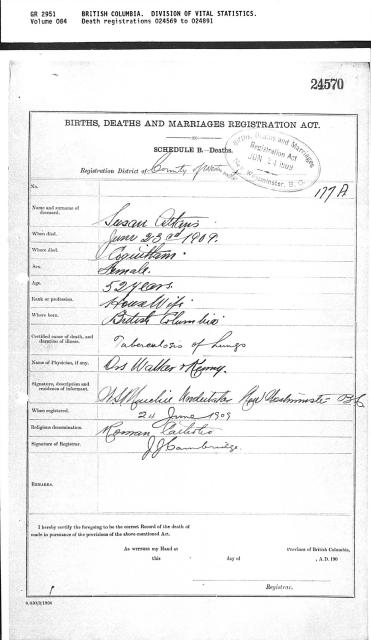 GR 2951 BRITISH COLUMBIA. DIVISION OF VITAL STATISTICS.
Volume 084 Death registrations 024569 to 024891
24570
BIRTHS, DEATHS AND MARRIAGES REGISTRATION ACT.
SCHEDULE B.—Deaths.
Births, Deaths and Marriages
Registration Act
JUN 24 1909
Westminster, B. C.
Registration District of County of
No. 177A
Name and surname of deceased. Susan Atkins
When died. June 23rd 1909.
Where died. Coquitlam.
Sex. Female.
Age. 52 years.
Rank or profession. House Wife
Where born. British Columbia
Certified cause of death, and duration of illness. Tuberculosis of Lungs
Name of Physician, if any. Drs Walker & Kenny.
Signature, description and residence of informant. Undertaker New Westminster BC
When registered. 24 June 1909
Religious denomination. Roman Catholic
Signature of Registrar. J J Cambridge.
REMARKS.
I hereby certify the foregoing to be the correct Record of the death of
made in pursuance of the provisions of the above-mentioned Act.
As witness my Hand at Province of British Columbia,
this day of , A.D. 190
Registrar.